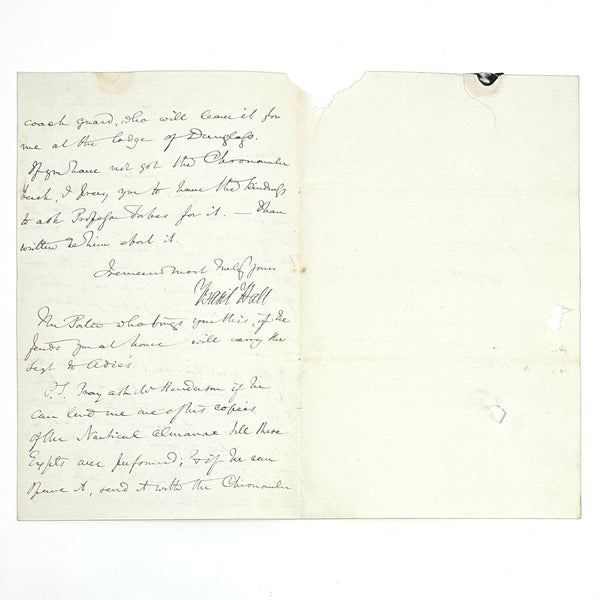 coach guard, who will leave it for
me at the lodge of Dunglass.
If you have not got the Chronometer
back, I pray you to have the kindness
to ask Professor Forbes for it. — I have
written to him about it.
I remain most truly yours
Basil Hall
who brings you this, if he
finds you at home will carry the
Sext to Adie's
P.S. Pray ask Mr Henderson if he
can lend me one of his copies
of the Nautical Almanac till these
Expts are performed; & if he can
spare it, send it with the Chronometer